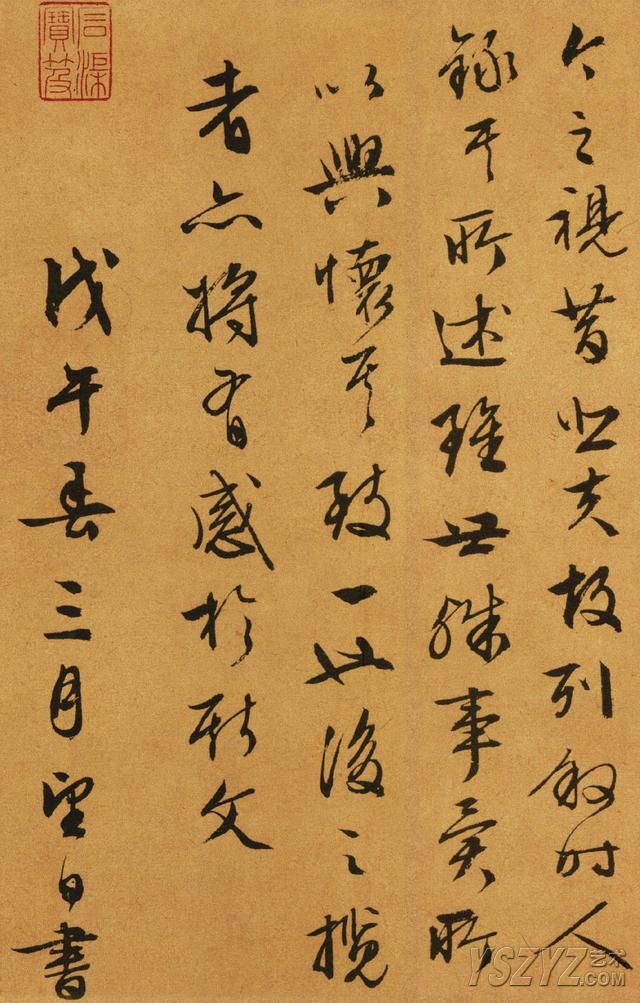 今之視昔悲夫故列敘時人
錄其所述雖世殊事異所
以興懷其致一也後之攬
者亦將有感於斯文
戊午春三月望日書
石渠寶笈
YSZYZ艺术
.COM